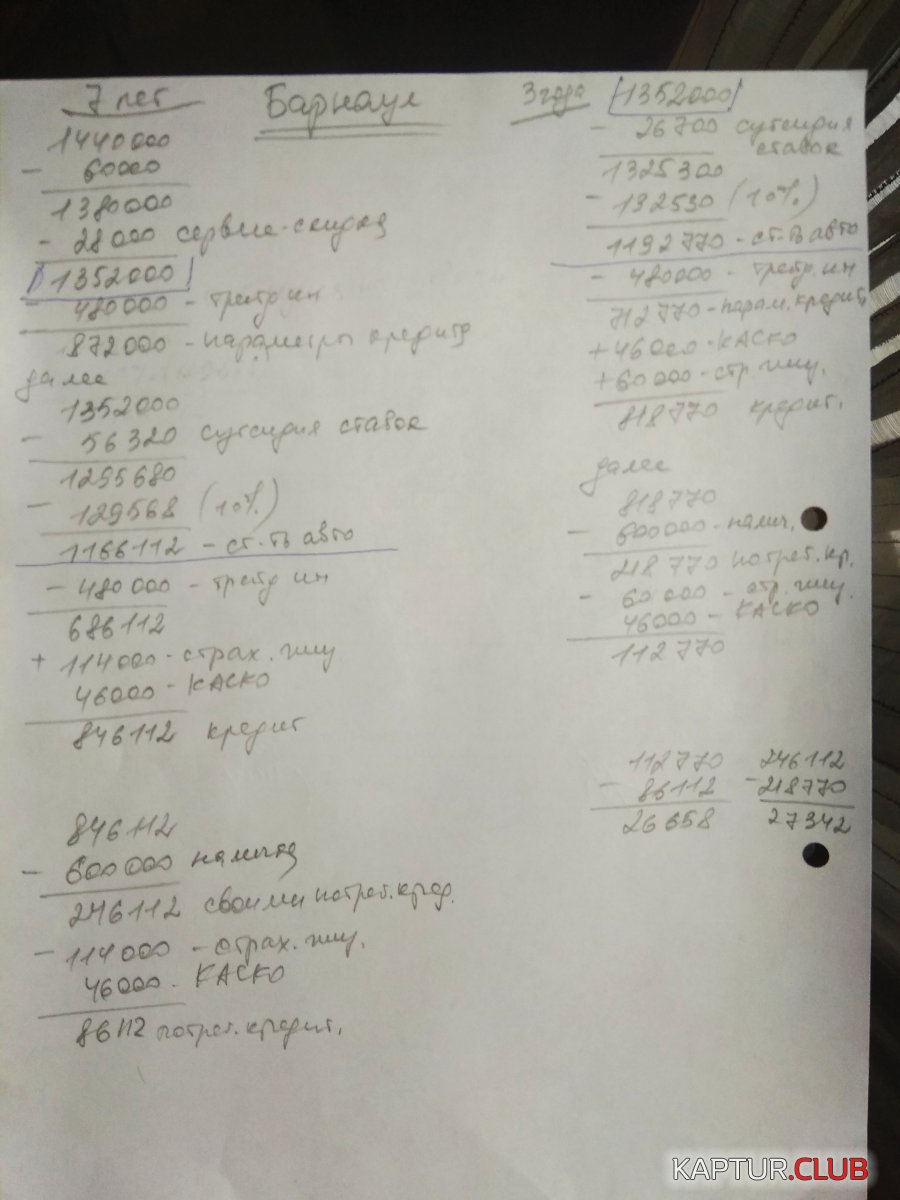 7 лет
Барнаул
1440000
- 60000
1380000
- 28000 сервис-скидка
1352000
- 480000 - трейд ин
872000 - параметры кредита
далее
1352000
- 56320 субсидия ставок
1295680
- 129568 (10%)
1166112 - ст-ть авто
- 480000 - трейд ин
686112
+ 114000 - страх. жиз
46000 - КАСКО
846112 кредит
846112
- 600000 наличка
246112 своими потреб. кред.
- 114000 - страх. жиз.
46000 - КАСКО
86112 потреб. кредит.
3 года 1352000
- 26700 субсидия
ставок
1325300
- 132530 (10%)
1192770 - ст-ть авто
- 480000 - трейд. ин
712770 - парам. кредита
+ 46000 - КАСКО
+ 60000 - стр. жиз.
818770 кредит.
далее
818770
- 600000 - налич.
218770 потреб. кр.
- 60000 - стр. жиз.
46000 - КАСКО
112770
112770 246112
- 86112 - 218770
26658 27342
KAPTUR.CLUB